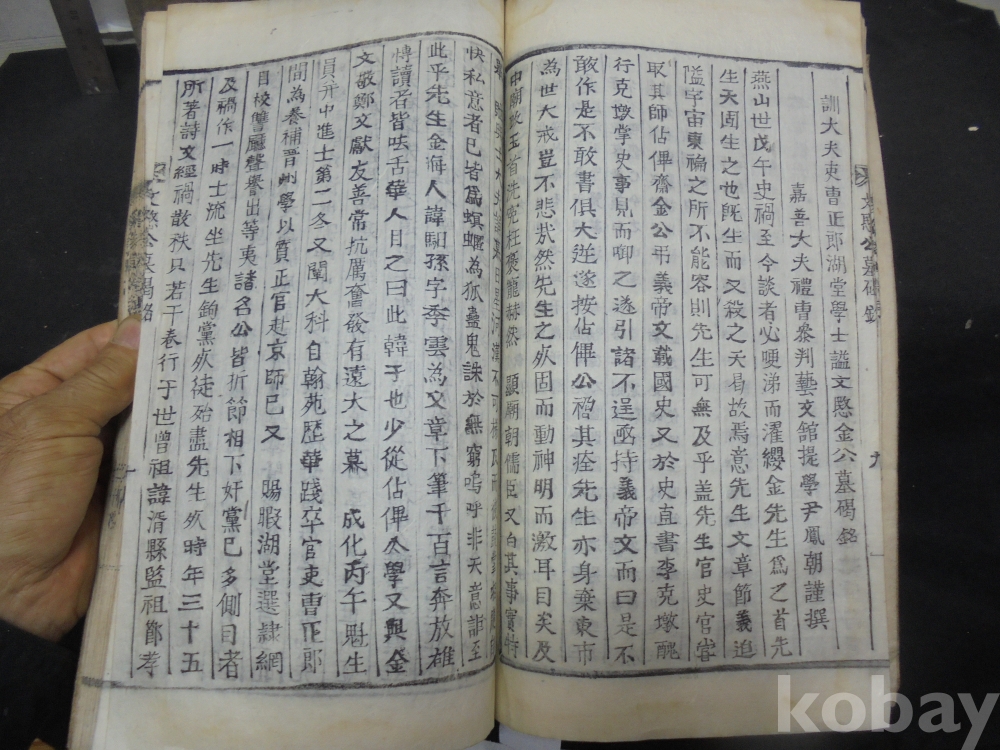 訓大夫吏曹正郎湖堂學士謚文愍金公墓碣銘
嘉善大夫禮曹叅判藝文館提學尹鳳朝謹撰
燕山世戊午史禍至今談者必哽涕而濯纓金先生爲之首先
生天固生之也旣生而又殺之天曷故焉意先生文章節義追
隘宇宙褊之所不能容則先生可無及乎盖先生官史官甞
取其師佔俾齋金公弔義帝文載國史又於史直書李克墩醜
行克墩掌史事見而啣之遂引諸不逞亟持義帝文而曰是不
敢作是不敢書俱大逆遂按佔俾公禍其痊先生亦身棄東市
為世大戒豈不悲㢤然先生之死固而動神明而激耳目矣及
中廟改玉首洗冤枉褒寵赫然 顯廟朝儒臣又白其事實特
快私意者已皆爲螟䘍為狐蠱鬼誅於無窮嗚呼非天意誰至
此乎先生金海人諱馹孫字季雲為文章下筆千百言奔放雄
愽讀者皆呿舌華人目之曰此韓子也少從佔俾公學又與金
文敬鄭文獻友善常抗厲奮發有遠大之慕 成化丙午魁生
員幷中進士第二冬又闡大科自翰苑歷華踐卒官吏曹正郎
間為養補晋州學以質正官赴京師已又 賜暇湖堂選隷網
目校讐廳聲譽出等夷諸名公皆折節相下奸黨已多側目者
及禍作一時士流坐先生鉤黨死徒殆盡先生死時年三十五
所著詩文經禍散秩只若干卷行于世曾祖諱湑縣監祖鄶孝
文愍公墓碣銘
九
文愍公墓碣銘
kobay